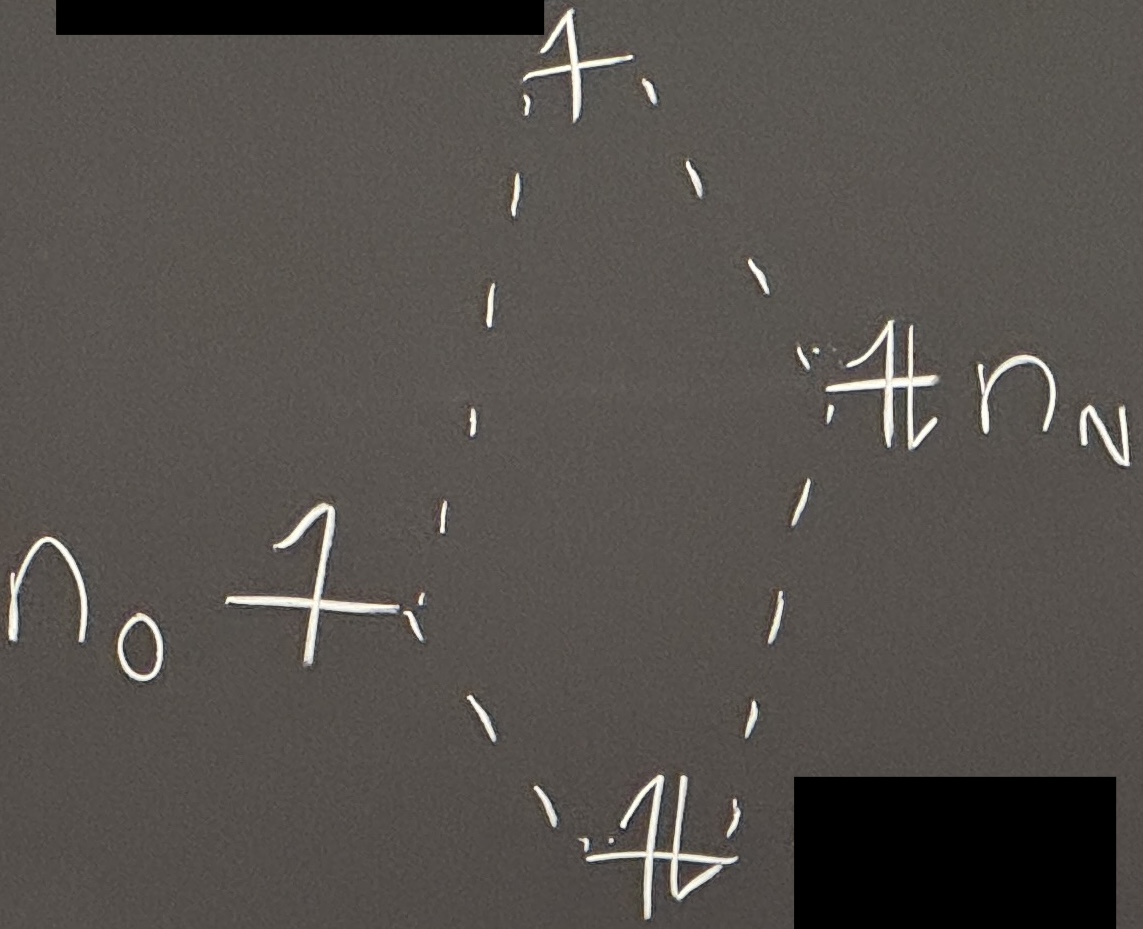 n_N
n_O